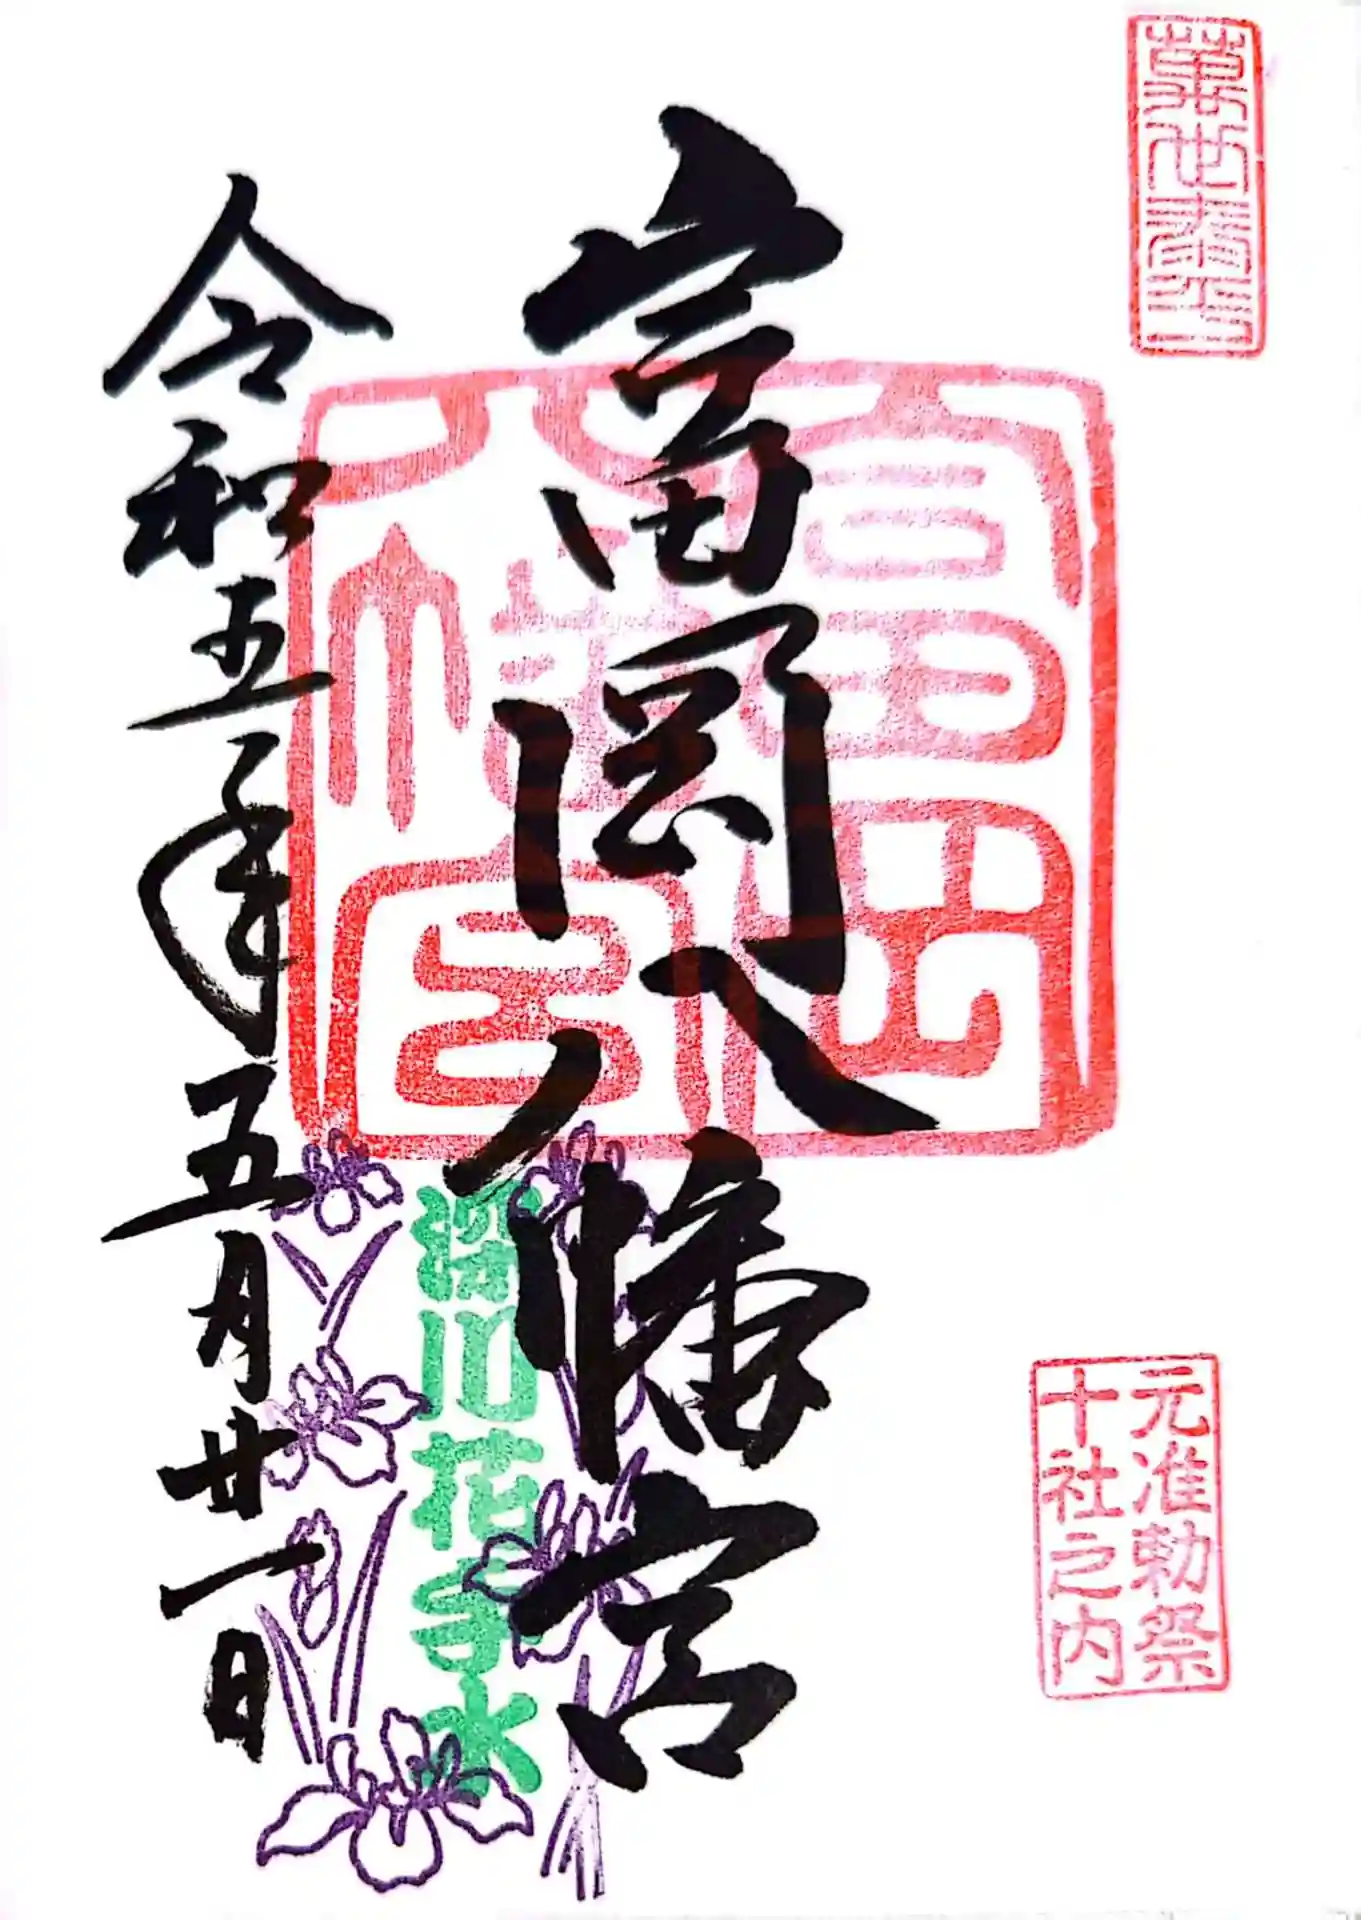 元准勅祭
十社之内
富岡八幡宮
富岡
八幡宮
深川花手水
令和五年五月廿一日